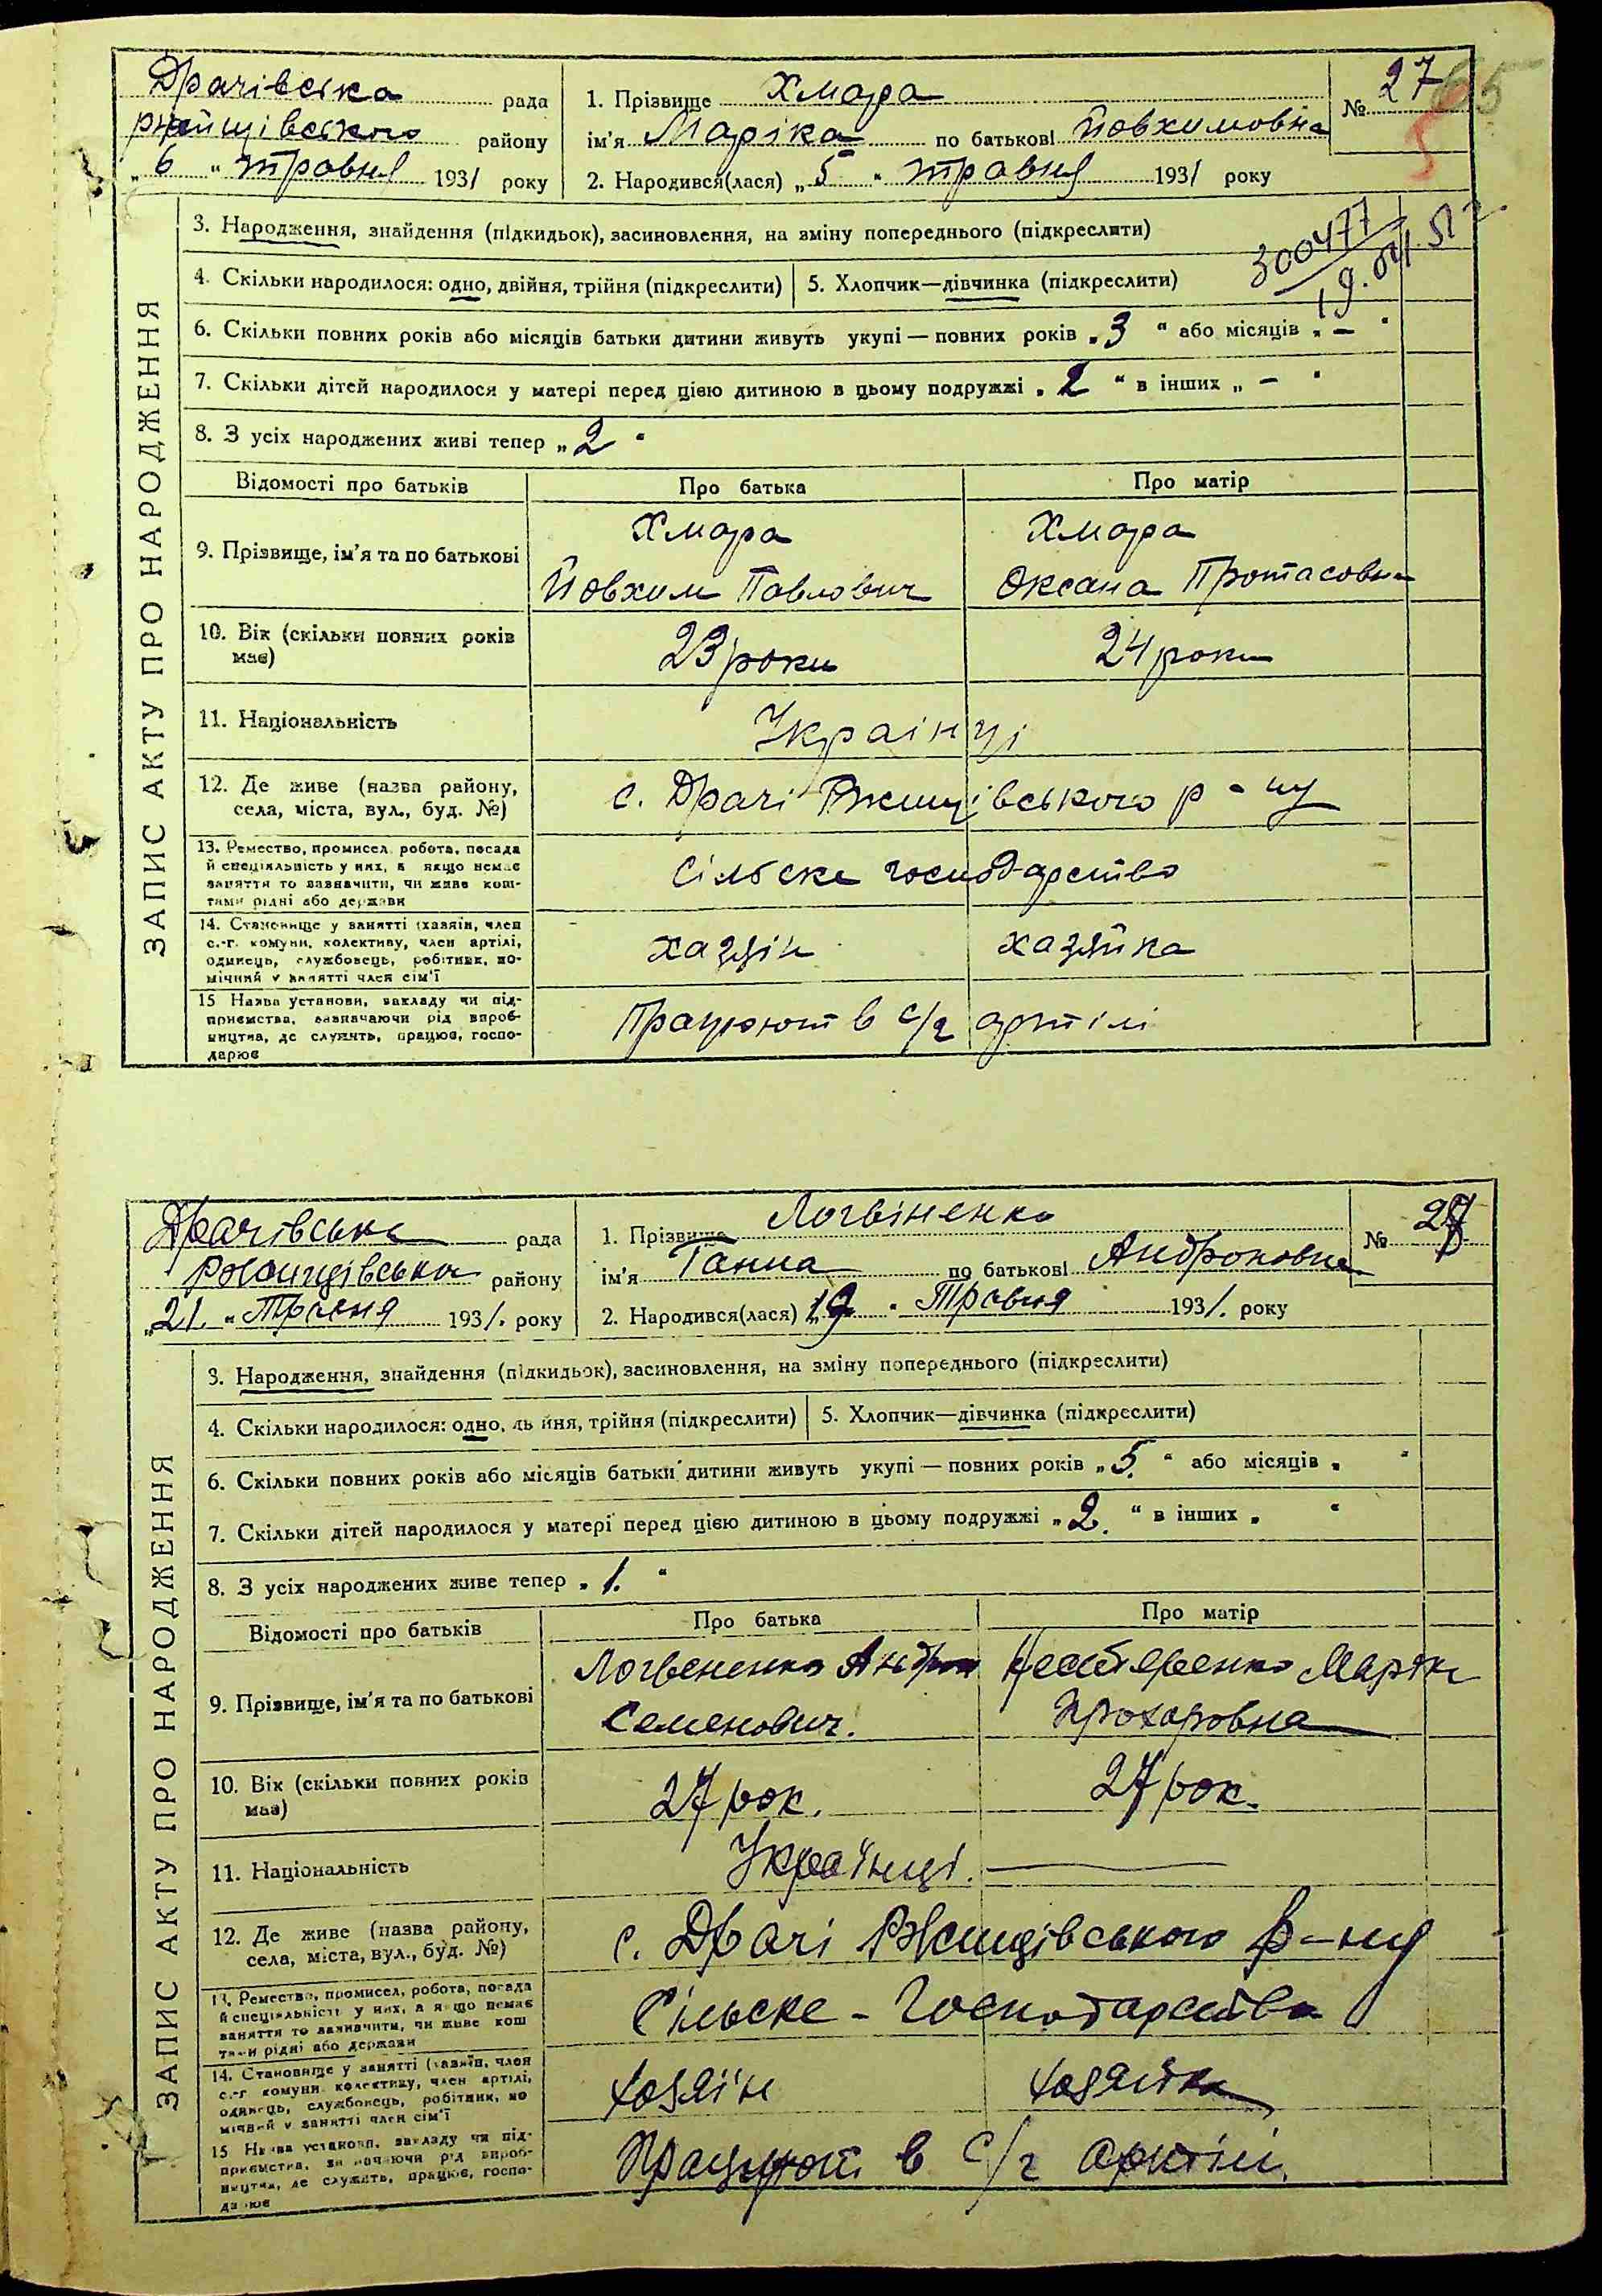 Драчівська рада
ржищівського району
„ 6 “ травня 1931 року
1. Прізвище Хмара
ім'я Маріка по батькові Йовхимовна
2. Народився(лася) „ 5 “ травня 1931 року
№ 27
65
5
300477
19.
ЗАПИС АКТУ ПРО НАРОДЖЕННЯ
3. Народження, знайдення (підкидьок), засиновлення, на зміну попереднього (підкреслити)
4. Скільки народилося: одно, двійня, трійня (підкреслити) 5. Хлопчик—дівчинка (підкреслити)
6. Скільки повних років або місяців батьки дитини живуть укупі — повних років „ 3 “ або місяців „ — “
7. Скільки дітей народилося у матері перед цією дитиною в цьому подружжі „ 2 “ в інших „ — “
8. З усіх народжених живі тепер „ 2 “
Відомості про батьків Про батька Про матір
9. Прізвище, ім'я та по батькові
Хмара Хмара
Йовхим Павлович Оксана Протасовна
10. Вік (скільки повних років має)
23 роки 24 роки
11. Національність Українці
12. Де живе (назва району, села, міста, вул., буд. №)
с. Драчі Ржищівського р-ну
13. Ремество, промисел, робота, посада
й спеціяльність у них, а якщо немає
заняття то зазначити, чи живе кош-
тами рідні або держави
Сільске господарство
14. Становище у занятті (хазяїн, член
с.-г. комуни, колективу, член артілі,
одинець, службовець, робітник, по-
мічний у занятті член сім'ї
хазяін хазяйка
15 Назва установи, закладу чи під-
приємства, зазначаючи рід вироб-
ництва, де служить, працює, госпо-
дарює
Працюют в с/г артілі
Драчівська рада
Ржищівська району
„21. “ Травня 1931. року
1. Прізвище Логвіненко
ім'я Ганна по батькові Андроновна
2. Народився(лася) „19 “ Травня 1931. року
№ 28
ЗАПИС АКТУ ПРО НАРОДЖЕННЯ
3. Народження, знайдення (підкидьок), засиновлення, на зміну попереднього (підкреслити)
4. Скільки народилося: одно, двійня, трійня (підкреслити) 5. Хлопчик—дівчинка (підкреслити)
6. Скільки повних років або місяців батьки дитини живуть укупі — повних років „ 5. “ або місяців „ “
7. Скільки дітей народилося у матері перед цією дитиною в цьому подружжі „ 2. “ в інших „ “
8. З усіх народжених живе тепер „ 1. “
Відомості про батьків Про батька Про матір
9. Прізвище, ім'я та по батькові
Логвененко Андрон Нестеренко Марія
Семенович. Прохоровна
10. Вік (скільки повних років має)
27 рок. 27 рок.
11. Національність Українці. —
12. Де живе (назва району, села, міста, вул., буд. №)
с. Драчі Ржищівського р-ну
13. Ремество, промисел, робота, посада
й спеціяльність у них, а якщо немає
заняття то зазначити, чи живе кош
тами рідні або держави
Сільске - Господарство
14. Становище у занятті (хазяїн, член
с.-г комуни, колективу, член артілі,
одинець, службовець, робітник, по
мічний у занятті член сім'ї
хозяїн хозяйка
15 Назва установи, закладу чи під-
приємства, зазначаючи рід вироб-
ництва, де служить, працює, госпо-
дарює
Працуют в с/г артілі.